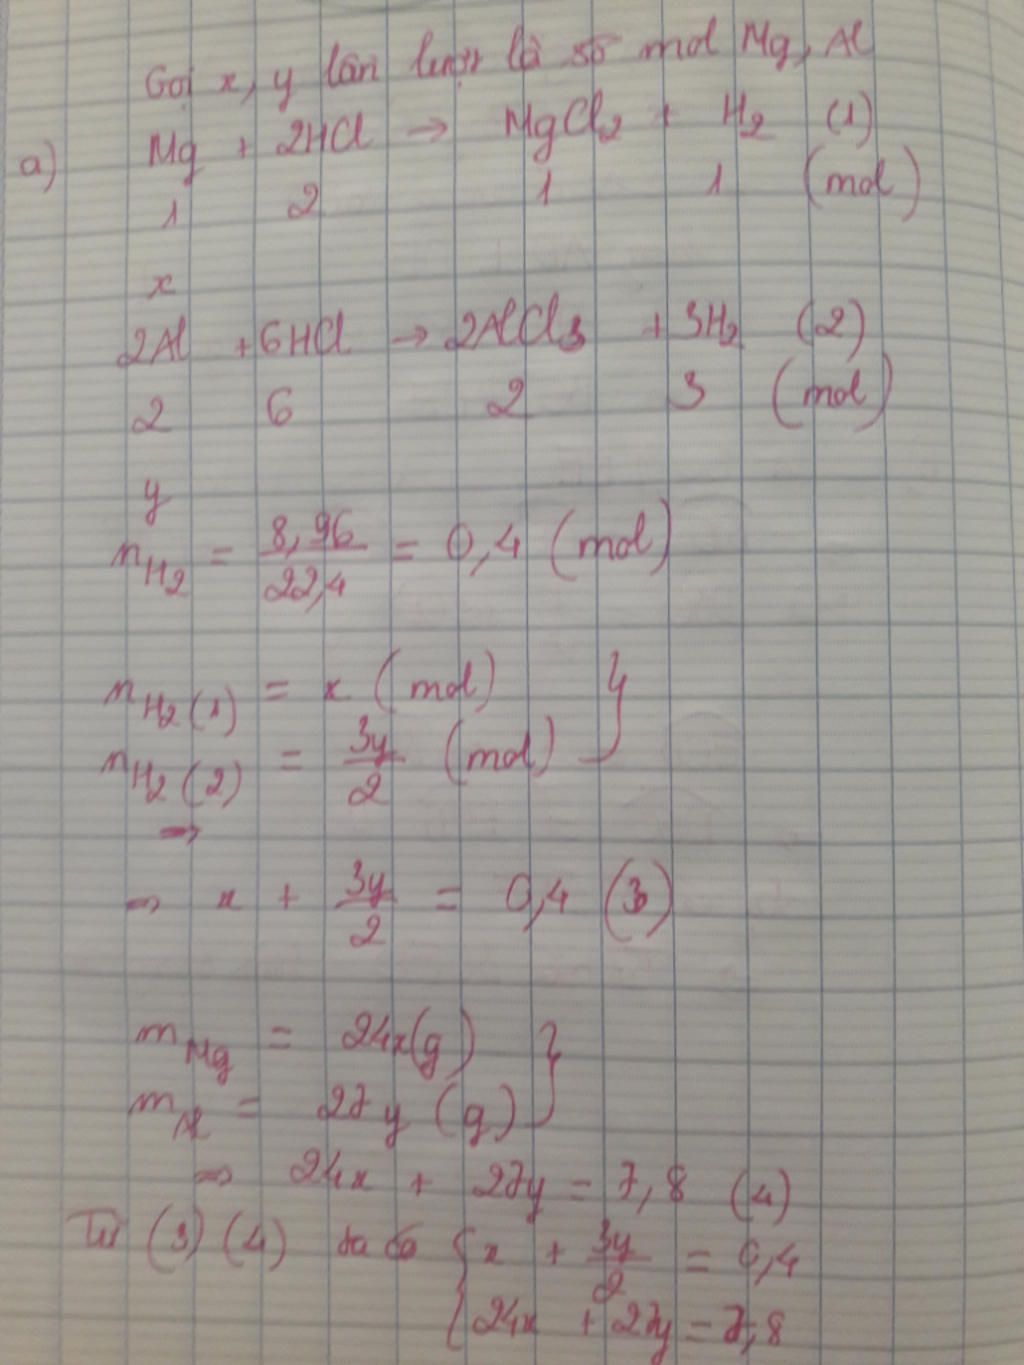 Gọi x, y lần lượt là số mol Mg, Al
a) Mg + 2HCl → MgCl2 + H2 (1)
1 2 1 1 (mol)
x
2Al + 6HCl → 2AlCl3 + 3H2 (2)
2 6 2 3 (mol)
y
nH2 = 8,96/22,4 = 0,4 (mol)
nH2(1) = x (mol) }
nH2(2) = 3y/2 (mol)
⇒
⇒ x + 3y/2 = 0,4 (3)
mMg = 24x(g) }
mAl = 27y (g)
⇒ 24x + 27y = 7,8 (4)
Từ (3) (4) ta có { x + 3y/2 = 0,4
24x + 27y = 7,8